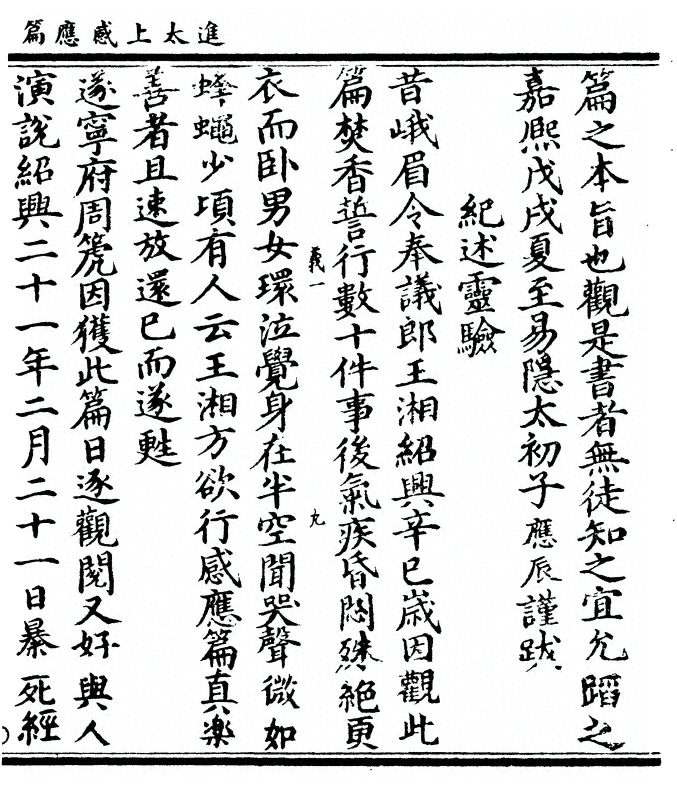 進太上感應篇
篇之本旨也觀是書者無徒知之宜允蹈之
嘉熙戊戌夏至易隱太初子應辰謹跋
紀述靈驗
昔峨眉令奉議郎王湘紹興辛巳歲因觀此
篇焚香誓行數十件事後氣疾昏悶殊絕更
義一
九
衣而卧男女環泣覺身在半空聞哭聲微如
蜂蠅少頃有人云王湘方欲行感應篇真樂
善者且速放還已而遂甦
遂寧府周箎因獲此篇日逐觀閱又好與人
演說紹興二十一年二月二十一日暴死經